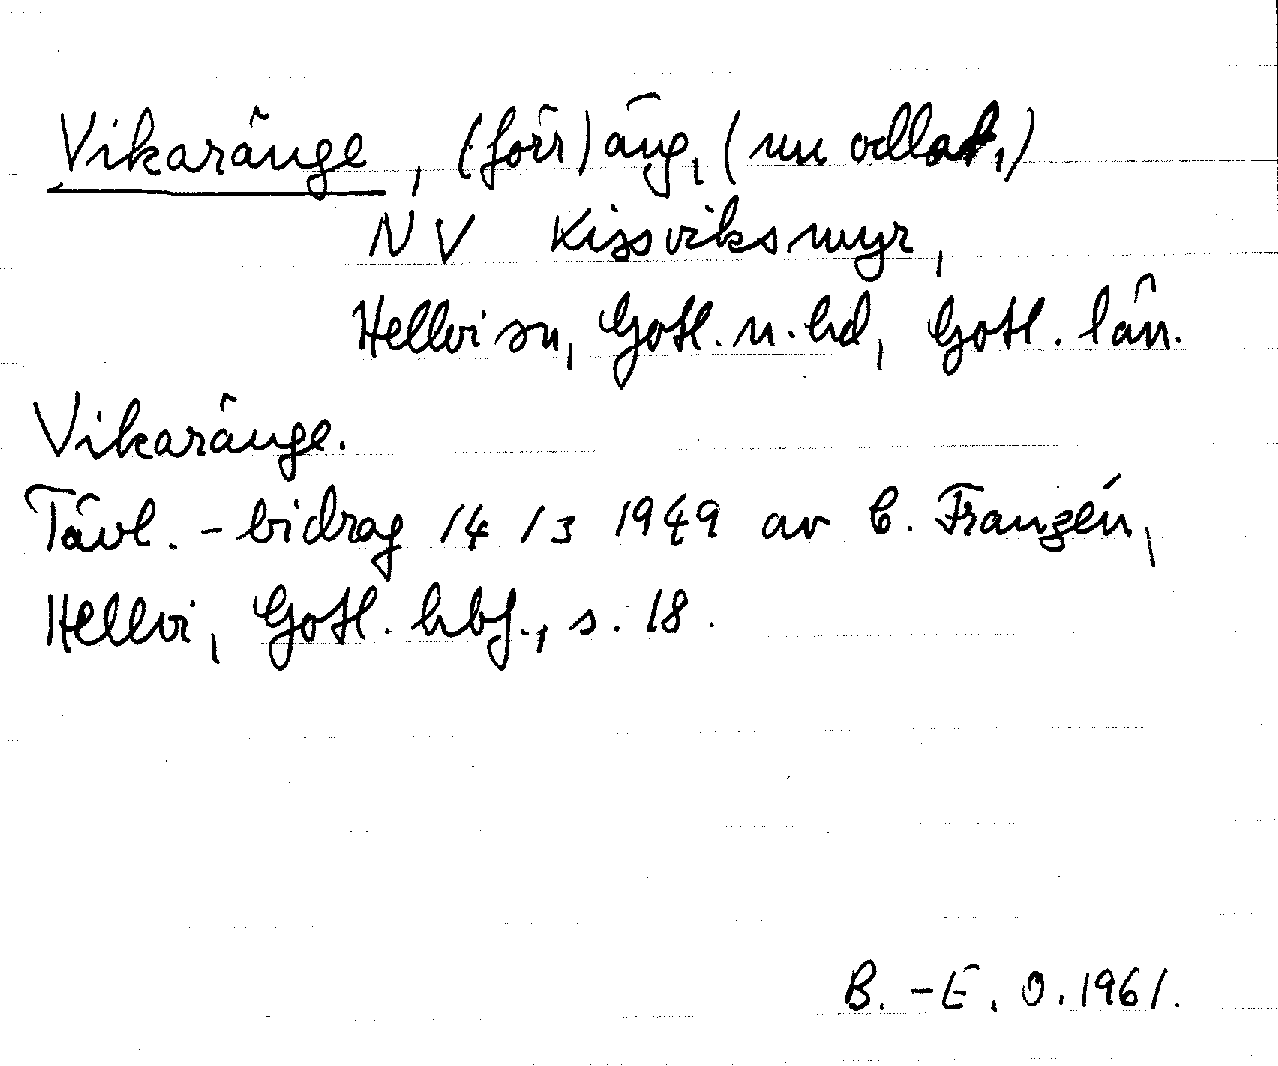 Vikaränge, (förr) äng, (nu odlat,)
NV Kissviksmyr,
Hellvi sn, Gotl. n. hd, Gotl. län.
Vikaränge.
Tävl.-bidrag 14/3 1949 av C. Franzén,
Hellvi, Gotl. hbf., s. 18.
B.-E. O. 1961.